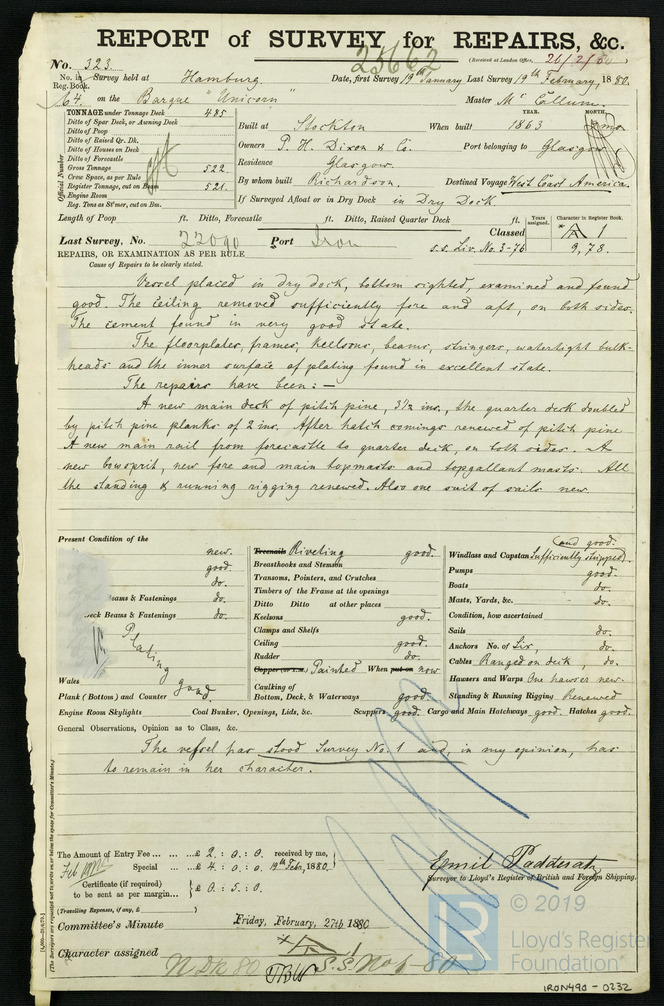 REPORT of SURVEY for REPAIRS, &c.
25662
No. 323 (Received at London Office, 26/2/80)
No. in Survey held at Hamburg Date, first Survey 19th January Last Survey 19th February, 1880.
Reg. Book.
64. on the Barque "Unicorn" Master Mc Callum.
TONNAGE under Tonnage Deck 485
Ditto of Spar Deck, or Awning Deck
Ditto of Poop
Ditto of Raised Qr. Dk.
Ditto of Houses on Deck
Ditto of Forecastle
Gross Tonnage 522.
Crew Space, as per Rule
Register Tonnage, cut on Beam 521.
Engine Room
Reg. Tons as St'mer, cut on Bm.
Official Number
YEAR. MONTH.
Built at Stockton When built 1863
Owners P. H. Dixon & Co. Port belonging to Glasgow
Residence Glasgow.
By whom built Richardson. Destined Voyage West Coast America.
If Surveyed Afloat or in Dry Dock in Dry Dock
Length of Poop ft. Ditto, Forecastle ft. Ditto, Raised Quarter Deck ft.
Years assigned. Character in Register Book.
Last Survey, No. 22090 Port Iron Classed A 1
s.s. Liv. No. 3-76 9,78
REPAIRS, OR EXAMINATION AS PER RULE
Cause of Repairs to be clearly stated.
Vessel placed in dry dock, bottom sighted, examined and found
good. The ceiling removed sufficiently fore and aft, on both sides.
The cement found in very good state.
The floorplates, frames, keelsons, beams, stringers, watertight bulk-
heads and the inner surface of plating found in excellent state.
The repairs have been: —
A new main deck of pitch pine, 3½ ins., the quarter deck doubled
by pitch pine planks of 2 ins. After hatch comings renewed of pitch pine
A new main rail from forecastle to quarter deck, on both sides. A
new bowsprit, new fore and main topmasts and topgallant masts. All
the standing & running rigging renewed. Also one suit of sails new.
Present Condition of the
new.
good.
do.
Beams & Fastenings do.
Deck Beams & Fastenings do.
Plating
Wales good
Plank (Bottom) and Counter
Treenails Riveting good.
Breasthooks and Stemson
Transoms, Pointers, and Crutches
Timbers of the Frame at the openings
Ditto Ditto at other places
Keelsons good.
Clamps and Shelfs
Ceiling good.
Rudder do.
Painted When put on now
Caulking of
Bottom, Deck, & Waterways good.
and good.
Windlass and Capstan sufficiently stripped.
Pumps good.
Boats do.
Masts, Yards, &c. do.
Condition, how ascertained
Sails do.
Anchors No. of Six, do.
Cables Ranged on deck, do.
Hawsers and Warps One hawser new.
Standing & Running Rigging Renewed
Engine Room Skylights Coal Bunker, Openings, Lids, &c. Scuppers good. Cargo and Main Hatchways good. Hatches good.
General Observations, Opinion as to Class, &c.
The vessel has stood Survey No. 1 and, in my opinion, has
to remain in her character.
The Amount of Entry Fee ... £ 2 : 0 : 0. received by me,
Special ... £ 4 : 0 : 0. 19th Febr., 1880.
Certificate (if required) £ 0 : 5 : 0.
to be sent as per margin...
(Travelling Expenses, if any, £ )
Emil Padderatz
Surveyor to Lloyd's Register of British and Foreign Shipping.
Committee's Minute Friday, February, 27th 1880
Character assigned A 1
N. Dk 80 S.S. No 1-80
© 2019
LR
Lloyd's Register
Foundation
IRON490-0232